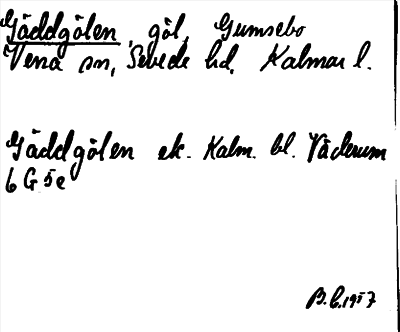 Gäddgölen, göl, Gumsebo
Vena sn, Sevede hd, Kalmar l.
Gäddgölen ek. Kalm. bl. Väderum
6 G 5 e
B. E. 1957